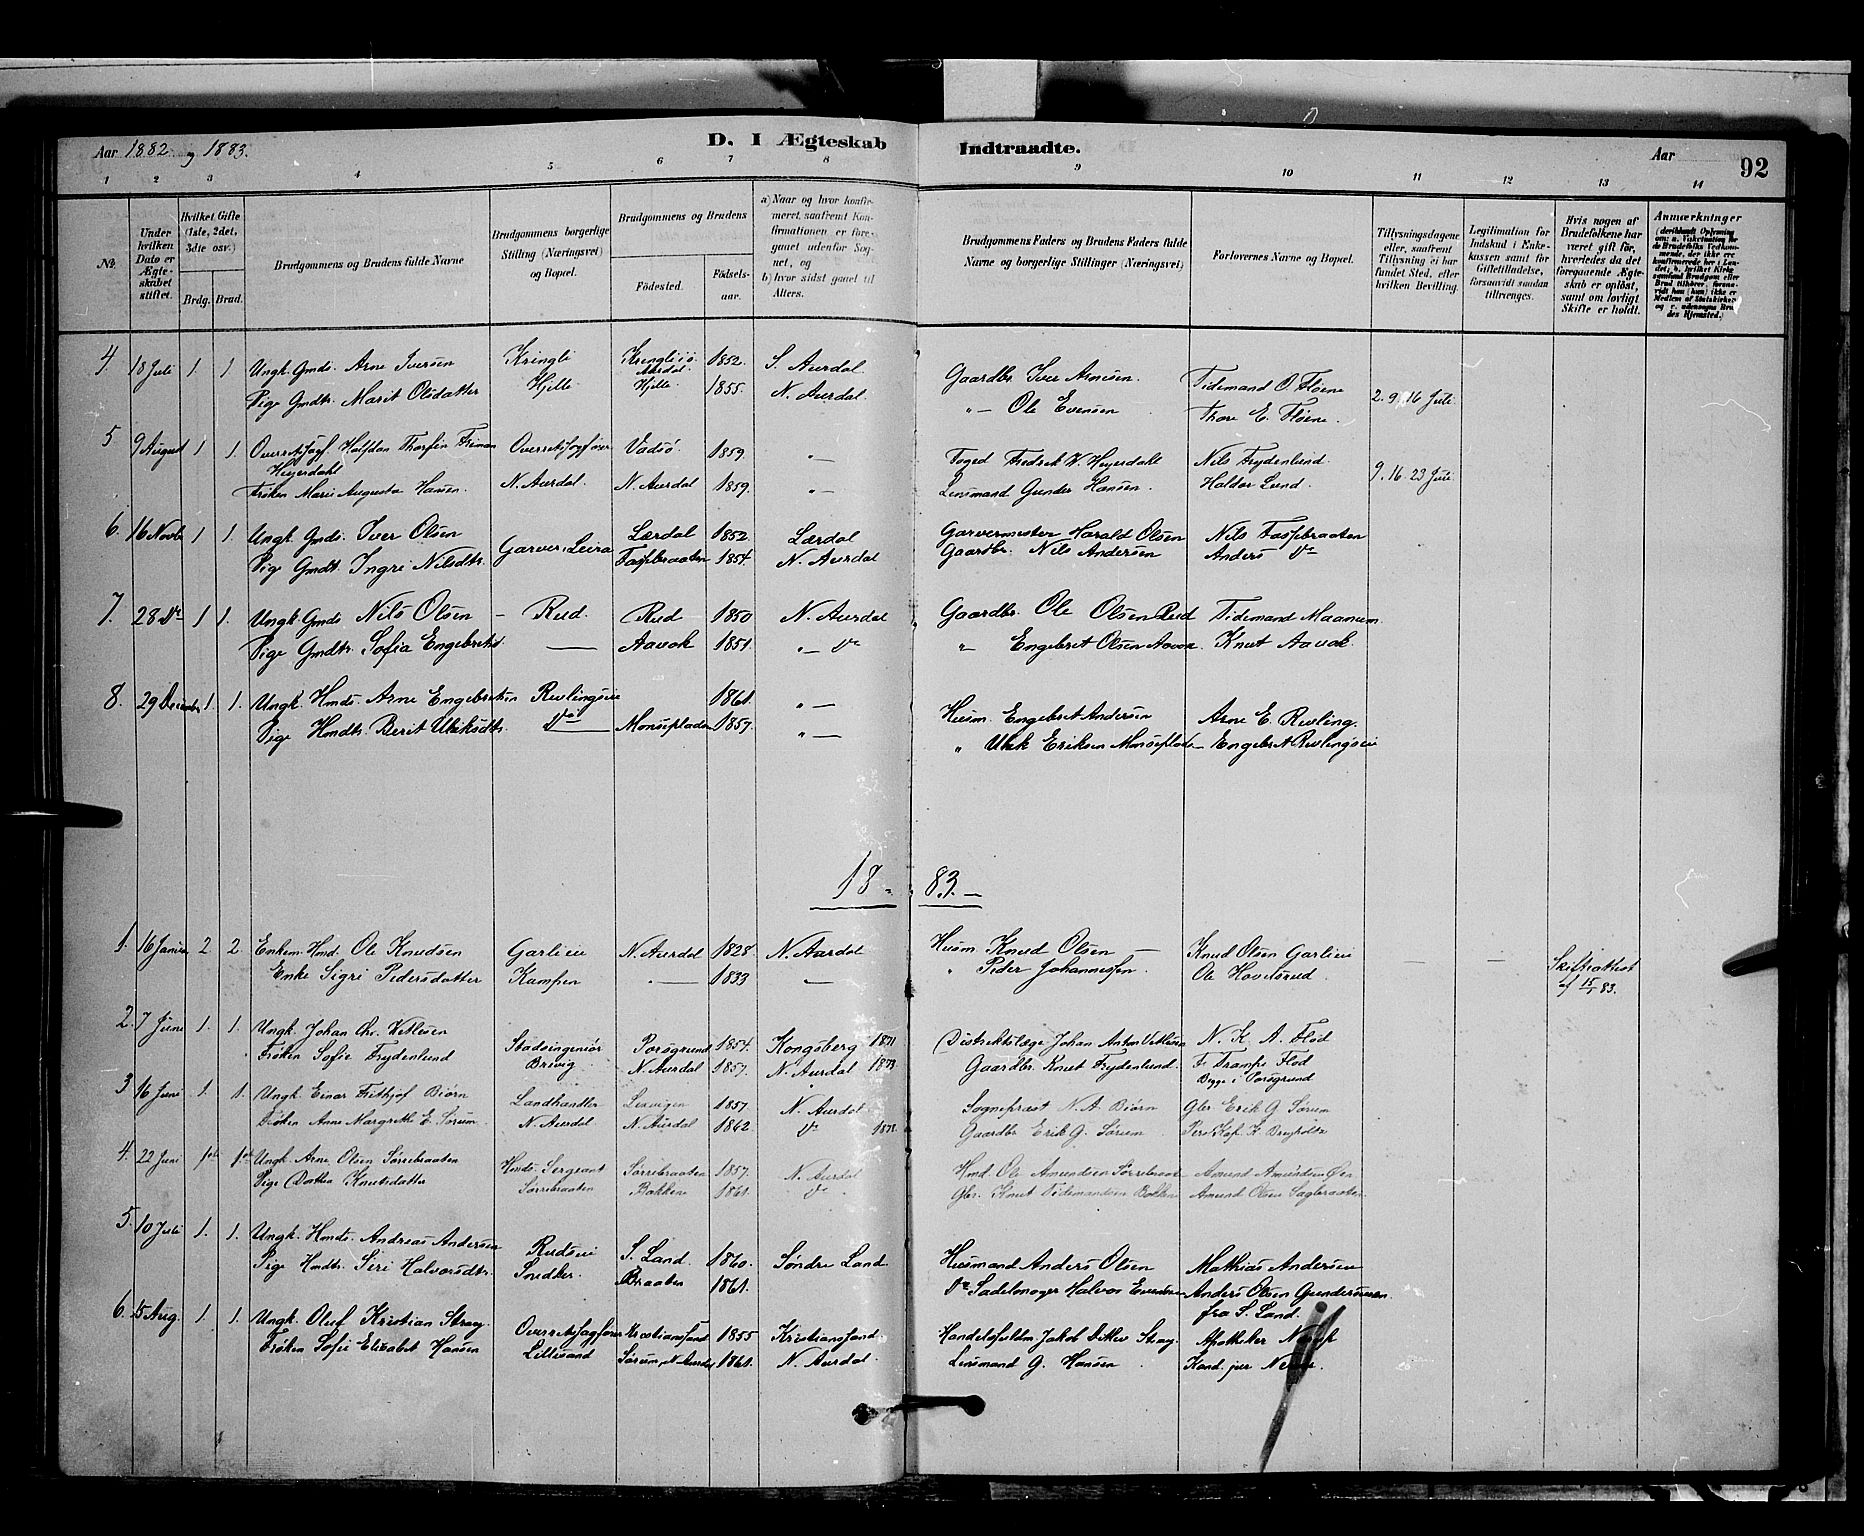 Aar 1882 og 1883.
D. I Ægteskab Indtraadte.
Aar
92
1 2 3 4 5 6 7 8 9 10 11 12 13 14
№.
Under hvilken Dato er Ægteskabet stiftet.
Hvilket Gifte (1ste, 2det, 3die osv.)
Brdg. Brud.
Brudgommens og Brudens fulde Navne
Brudgommens borgerlige Stilling (Næringsvei) og Bopæl.
Brudgommens og Brudens
Fødested.
Fødselsaar.
a) Naar og hvor konfirmeret, saafremt Konfirmationen er foregaaet udenfor Sognet, og
b) hvor sidst gaaet til Alters.
Brudgommens Faders og Brudens Faders fulde Navne og borgerlige Stillinger (Næringsvei)
Forlovernes Navne og Bopæl.
Tillysningsdagene eller, saafremt Tillysning ei har fundet Sted, efter hvilken Bevilling.
Legitimation for Indskud i Enkekassen samt for Giftetilladelse, forsaavidt saadan tiltrænges.
Hvis nogen af Brudefolkene har været gift før, hvorledes da det foregaaende Ægteskab er opløst, samt om lovligt Skifte er holdt.
Anmærkninger
4. 18 Juli 1 1 Ungk. Gmds. Arne Iversen Kringli Kringli i S. Aurdal. 1852. S. Aurdal Gaardbr. Iver Arnesen. Tidemand O. Fløene 2. 9. 16 Juli.
Pige Gmdtr. Marit Olsdatter Hjelle Hjelle 1855. N. Aurdal. " — Ole Evensen Thore E. Fløene.
5 9 August 1 1. Overretssagf. Halfdan Thorfin Friman Overretssagfører Vadsø 1859. " — Foged Fredrik W. Heyerdahl Nils Frydenlund. 9. 16. 23 Juli.
Heyerdahl
Frøken Marie Augusta Hansen. N. Aurdal. N. Aurdal 1859. " — Lensmand Gunder Hansen. Haldor Lund.
6. 16 Novb 1 1. Ungk. Gmds. Iver Olsen Garver, Leira Lærdal 1852 Lærdal Garvermester Harald Olsen Nils Faspbraaten
Pige Gmdt. Ingri Nilsdtr. Faspbraaten 1854. N. Aurdal Gaardbr. Nils Andersen Anders Do
7. 28 Do 1 1. Ungk. Gmds Nils Olsen — Rud. Rud 1850 N. Aurdal Gaardbr. Ole Olsen Rud Tidemand Maanum.
Pige Gmdtr. Sofia Engebretsd — Aavok 1851. " — Do " Engebret Olsen Aavok Knut Aavok.
8. 29 December 1. 1. Ungk. Hmds. Arne Engebretsen Revlingseie 1861. " — Husm. Engebret Andersen Arne E. Revling.
Pige Hmdtr. Berit Ulriksdtr. Do Monsepladen 1857. " — " Ulrik Eriksen Monseplade Engebret Revlingseie
18 83.
1. 16 Januar 2 2. Enkem. Hmd. Ole Knudsen Garlieie N. Aurdal 1828. N. Aurdal Husm. Knud Olsen — Knud Olsen Garlieie — — Skifteattest
Enke Sigri Pedersdatter Kampen " — 1833 — " Peder Johannessen. Ole Hovelsrud. af 15/1 83.
2. 7 Juni 1. 1. Ungk. Johan Chr. Vetlesen Stadsingeniør Porsgrund 1854. Kongsberg 1871 Distriktslæge Johan Anton Vetlesen N. K. A. Flod
Frøken Sofie Frydenlund Brevig N. Aurdal 1857. N. Aurdal 1873 Gaardbr. Knut Frydenlund. F. Trampe Flod
Begge i Porsgrund
3 16 Juni 1 1. Ungk. Einar Frithjof Biørn Landhandler 1857. N. Aurdal Sogneprest N. A. Biørn Gbr. Erik G. Sørum
Frøken Anne Margrethe E. Sørum. N. Aurdal N. Aurdal 1862. Do 1878. Gaardbr. Erik G. Sørum
4. 22 Juni 1ste 1ste Ungk. Arne Olsen Sørrebraaten Hmds. Sergeant Sørrebraaten 1857. N. Aurdal Hmd. Ole Amundsen Sørrebraate Amund Amundsen Øen
Pige Dorthea Knutsdatter Sørrebraaten Bakkene 1861. Do Gbr. Knut Tidemandsen Bakken Amund Olsen Sagbraaten
5. 10 Juli 1. 1. Ungk. Hmds. Andreas Andersen Rudseie S. Land. 1860. Søndre Land. Husmand Anders Olsen Mathias Andersen
Pige Hmdtr. Siri Halvorsdtr. Snedker. Braaten 1861. Do Sadelmager Halvor Evensen Anders Olsen
fra S. Land.
6. 15 Aug. 1. 1. Ungk. Oluf Kristian Stray Overretssagfører Kristianssand 1855 Kristianssand. Handelsfuldm. Jakob Ditlev Stray. Apotheker
Frøken Sofie Elisabet Hansen Lillesand Sørum, N. Aurdal 1861. N. Aurdal. Lensmand G. Hansen Kand. jur